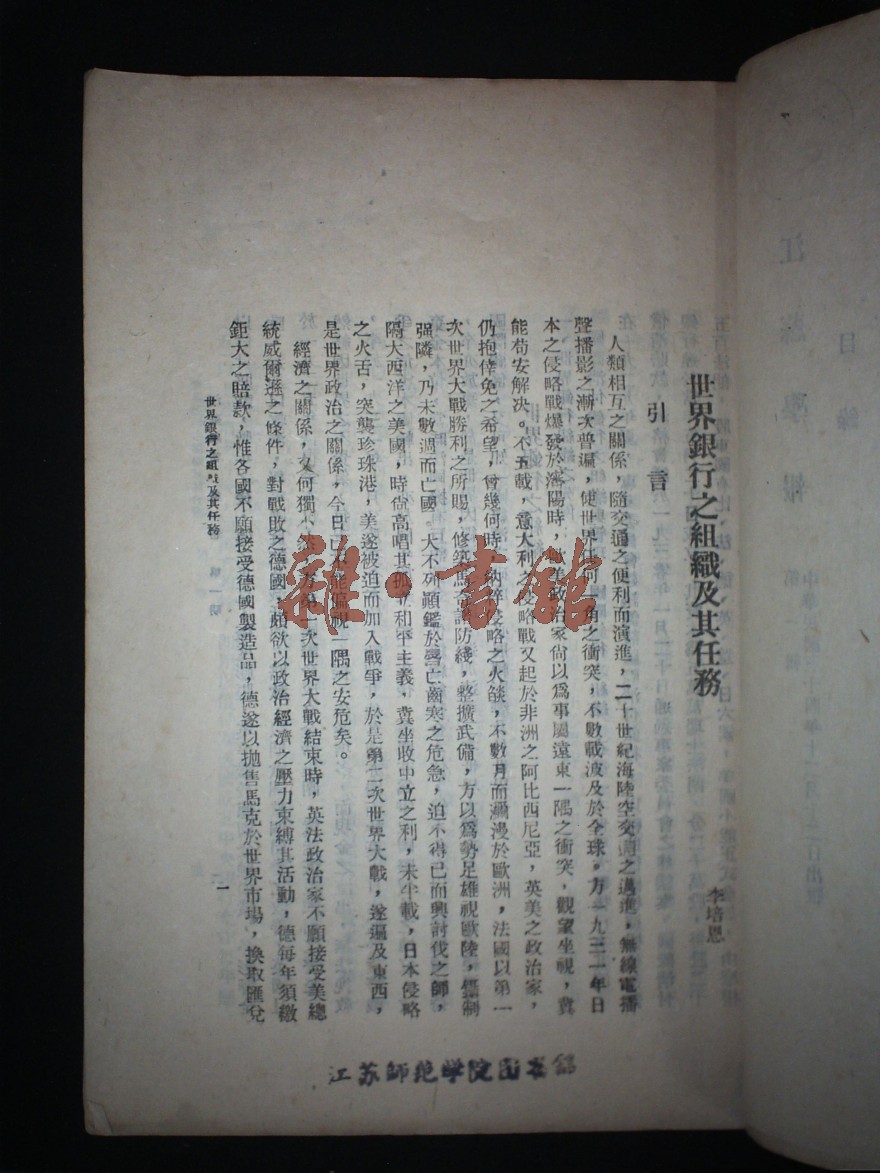 世界銀行之組織及其任務
李培恩
引言
人類相互之關係，隨交通之便利而演進，二十世紀海陸空交通之邁進，無線電播
聲播影之漸次普遍，使世界任何一角之衝突，不數載波及於全球，方一九三一年日
本之侵略戰爆發於瀋陽時，歐美政治家尚以爲事屬遠東一隅之衝突，觀望坐視，冀
能苟安解决。不五載，意大利之侵略戰又起於非洲之阿比西尼亞，英美之政治家，
仍抱倖免之希望，曾幾何時，納粹侵略之火燄，不數月而瀰漫於歐洲，法國以第一
次世界大戰勝利之所賜，修築馬奇諾防綫，整擴武備，方以爲勢足雄視歐陸，箝制
强隣，乃未數週而亡國。大不列顛鑑於唇亡齒寒之危急，迫不得已而興討伐之師，
隔大西洋之美國，時尚高唱其孤立和平主義，冀坐收中立之利，未半載，日本侵略
之火舌，突襲珍珠港，美遂被迫而加入戰爭，於是第二次世界大戰，遂遍及東西，
是世界政治之關係，今日已不能偏視一隅之安危矣。
經濟之關係，又何獨不然，方第一次世界大戰結束時，英法政治家不願接受美總
統威爾遜之條件，對戰敗之德國，頗欲以政治經濟之壓力束縛其活動，德每年須繳
鉅大之賠款，惟各國不願接受德國製造品，德遂以拋售馬克於世界市場，換取匯兌
世界銀行之組織及其任務
第一期
一
雜·書館
江苏师范学院图書館
目錄